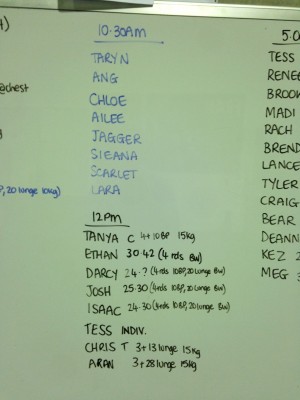 H)
@chest
P, 20 lunge 10kg)
10:30am
TARYN
ANG
CHLOE
AILEE
JAGGER
SIEANA
SCARLET
LARA
12pm
TANYA C 4+10BP 15kg
ETHAN 30.42 (4 rds BW)
DARCY 24.? (4 rds 10BP, 20 lunge BW)
JOSH 25.30 (4 rds 10BP, 20 lunge BW)
ISAAC 24.30 (4 rds 10BP, 20 lunge BW)
TESS INDIV.
CHRIS T 3+13 lunge 15kg
ARAN 3+28 lunge 15kg
5:0
TESS
RENEE
BROOK
MADI
RACH
BREND
LANCE
TYLER
CRAIG
BEAR
DEANN
KEZ 2
MEG 3